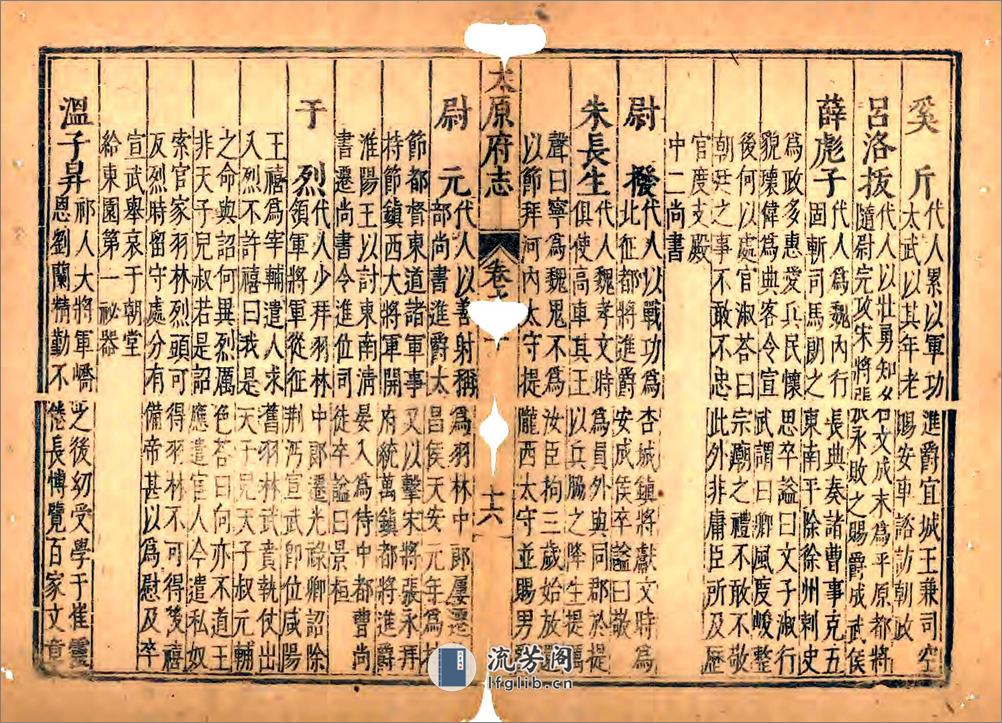 奚 斤代人累以軍功進爵宜城王兼司空
太武以其年老賜安車諮訪朝政
呂洛拔代人以壯勇知名文成末為平原都將
隨尉元攻宋將張永敗之賜爵成武侯
薛彪子代人為魏內行張典奏諸曹事克五
固斬司馬朗之東南平除徐州刺史
為政多惠愛兵民懷思卒謚曰文子淑行
貌瓌偉為典客令宣武謂曰卿風度峻整
後何以處官淑荅曰宗廟之禮不敢不敬
朝廷之事不敢不忠此外非庸臣所及歷
官度支殿
中二尚書
尉 撥代人以戰功為杏城鎮將獻文時為
北征都將進爵安成侯卒謚曰敬
朱長生代人魏孝文時為員外與同郡於提
俱使高車其王以兵脇之降生提厲
聲曰寧為魏鬼不為汝臣拘三歲始放還
以節拜河內太守提隴西太守並賜男
太原府志
卷之
十六
尉 元代人以善射稱為羽林中郎屢遷
部尚書進爵太昌侯天安元年為
節都督東道諸軍事又以擊宋將張永拜
持節鎮西大將軍開府統萬鎮都將進爵
淮陽王以討東南清晏入為侍中都曹尚
書遷尚書令進位司徒卒謚曰景桓
于 烈代人少拜羽林中郎遷光祿卿詔除
領軍將軍從征荆沔宣武卽位咸陽
王禧為宰輔遣人求舊羽林武賁執仗出
入烈不許禧曰我是天子兒天子叔元輔
之命與詔何異烈厲色荅曰向亦不道王
非天子兒叔若是詔應遣官人今遣私奴
索官家羽林烈頭可得羽林不可得冀禧
反烈時留守處分有備帝甚以為慰及卒
宣武舉哀于朝堂
給東園第一祕器
溫子昇祁人大將軍嶠之後初受學于崔靈
恩劉蘭精勤不倦長博覽百家文章
流芳阁
lfglib.cn